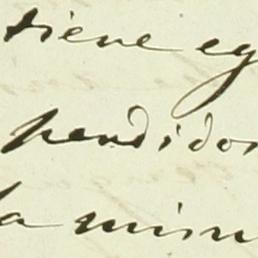 tiene eg
pendidos
la minu